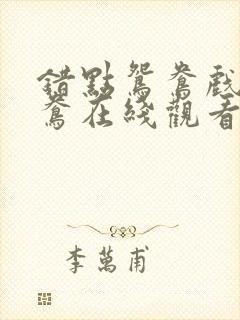 錯點鴛鴦戲
鴦在綫觀看
李萬甫